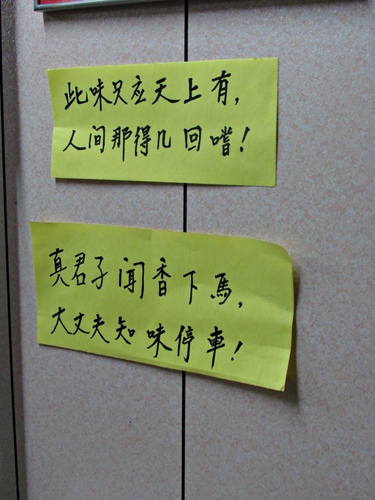 此味只应天上有，
人间那得几回嚐！
真君子闻香下馬，
大丈夫知味停車！